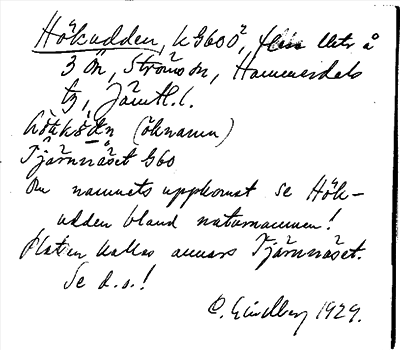 Hökudden, k G600², flera lktr å
3 ön, Ströms sn, Hammerdals
tg, Jämtl. l.
(öknamn)
Tjärnnäset G60
Om namnets uppkomst se Hök-
udden bland naturnamnen!
Platsen kallas annars Tjärnnäset.
Se d.o.!
C. Lindberg 1929.